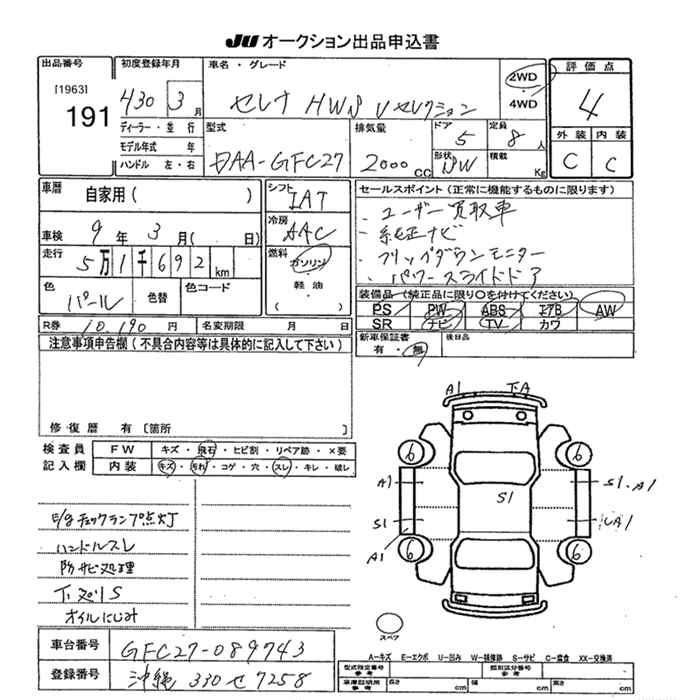 JU オークション出品申込書
出品番号 初度登録年月 車名・グレード 評価点
[1963] H30 3月 セレナ HWS Vセレクション 2WD 4WD 4
191
ディーラー・並行 型式 排気量 ドア 定員 外装 内装
モデル年式 年 DAA-GFC27 2000cc 5 8人 C C
ハンドル 左・右 形状 SW 積載 Kg
車暦 自家用( ) シフト IAT セールスポイント(正常に機能するものに限ります)
車検 9年 3月( 日) 冷房 AAC ・ユーザー買取車
走行 5万1千692km 燃料 ガソリン ・純正ナビ
軽油 ・フリップダウンモニター
( ) ・パワースライドドア
色 パール 色替 色コード
装備品(純正品に限り○を付けてください)
PS PW ABS エアB AW
R券 10,190円 名変期限 月 日 SR ナビ TV カワ
注意事項申告欄(不具合内容等は具体的に記入して下さい) 新車保証書 有・無 後日品
修復歴 有〔箇所 〕
検査員 FW キズ・飛石・ヒビ割・リペア跡・×要
記入欄 内装 キズ・汚れ・コゲ・穴・スレ・キレ・破レ
A1 下A
6 6
A1 S1 S1.A1
S1 A1
A1 6 6
E/gチェックランプ点灯
ハンドルスレ
防サビ処理
下廻りS
オイルにじみ
スペア
車台番号 GFC27-089743
A-キズ E-エクボ U-凹み W-補修跡 S-サビ C-腐食 XX-交換済
登録番号 沖縄 330 せ 7258
型式指定番号 参考 類別区分番号 参考
車庫証明用 参考 長さ cm 幅 cm 高さ cm